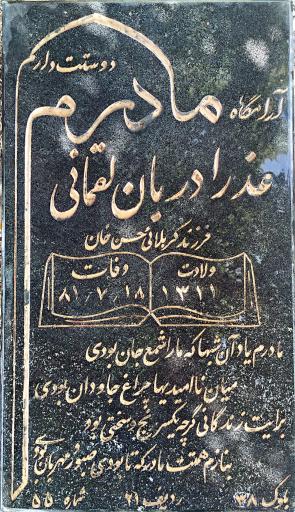 دوستت دارم
آرامگاه مادرم
عذرا دربان لقمانی
فرزند کربلائی حسن خان
ولادت وفات
۱۳۱۱ ۸۱٫۷٫۱۸
مادرم یاد آن شبها که ما را شمع جان بودی
میان ناامیدیها چراغ جاودان بودی
برایت زندگانی گرچه یکسر رنج و سختی بود
بنازم همتت مادر که تا بودی صبور و مهربان بودی
بلوک ۳۸ ردیف ۲۱ شماره ۵۵